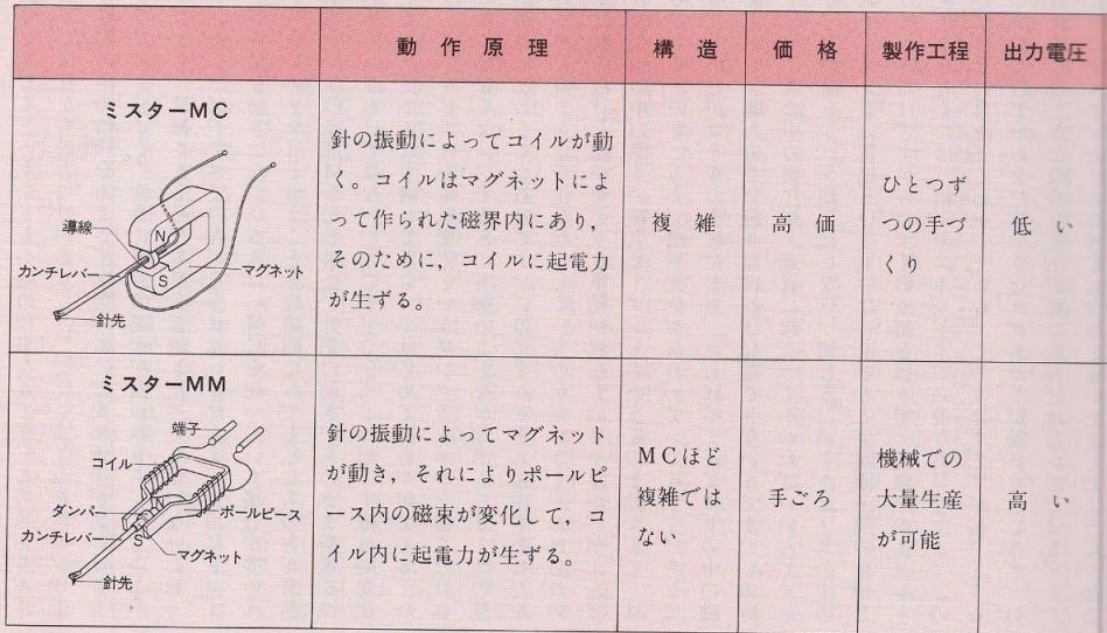 動作原理
構造
価格
製作工程
出力電圧
ミスターMC
導線
N
カンチレバー
マグネット
S
針先
針の振動によってコイルが動
く。コイルはマグネットによ
って作られた磁界内にあり，
そのために，コイルに起電力
が生ずる。
複雑
高価
ひとつず
つの手づ
くり
低い
ミスターMM
端子
コイル
N
ダンパー
ポールピース
カンチレバー
S
マグネット
針先
針の振動によってマグネット
が動き，それによりポールピ
ース内の磁束が変化して，コ
イル内に起電力が生ずる。
MCほど
複雑では
ない
手ごろ
機械での
大量生産
が可能
高い